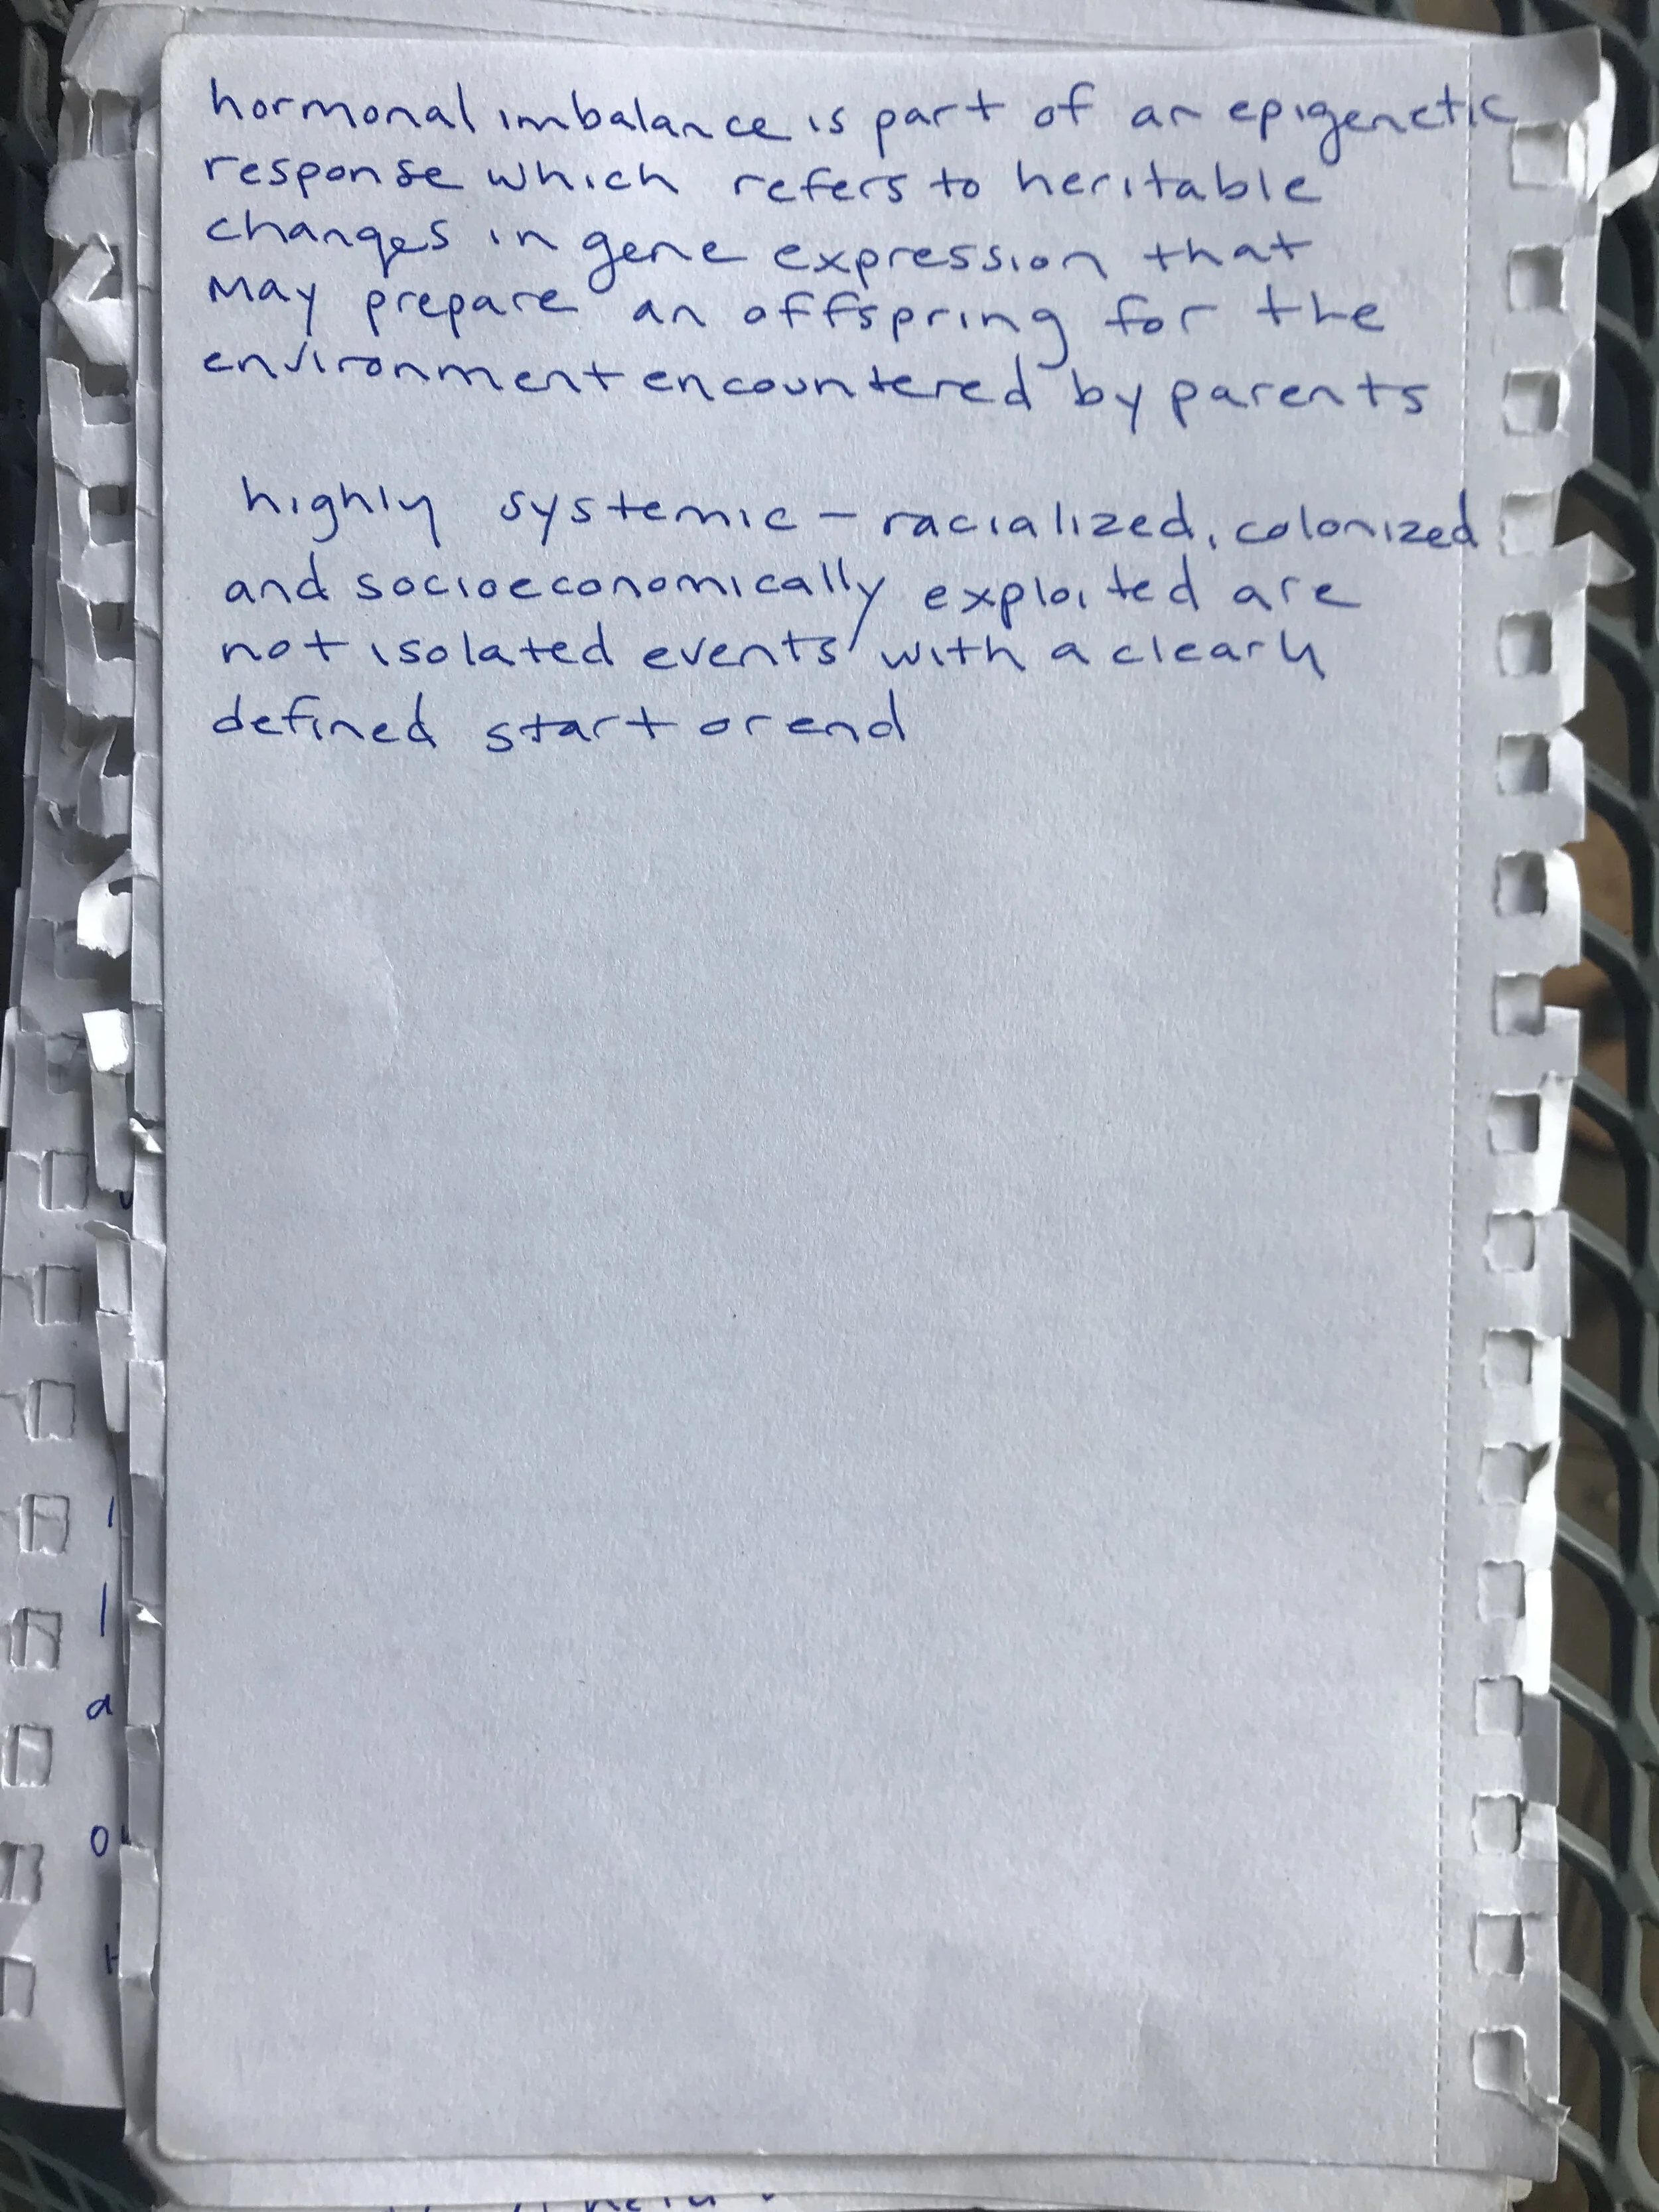 hormonal imbalance is part of an epigenetic
response which refers to heritable
changes in gene expression that
May prepare an offspring for the
environment encountered by parents
highly systemic - racialized, colonized
and socioeconomically exploited are
not isolated events with a clearly
defined start or end